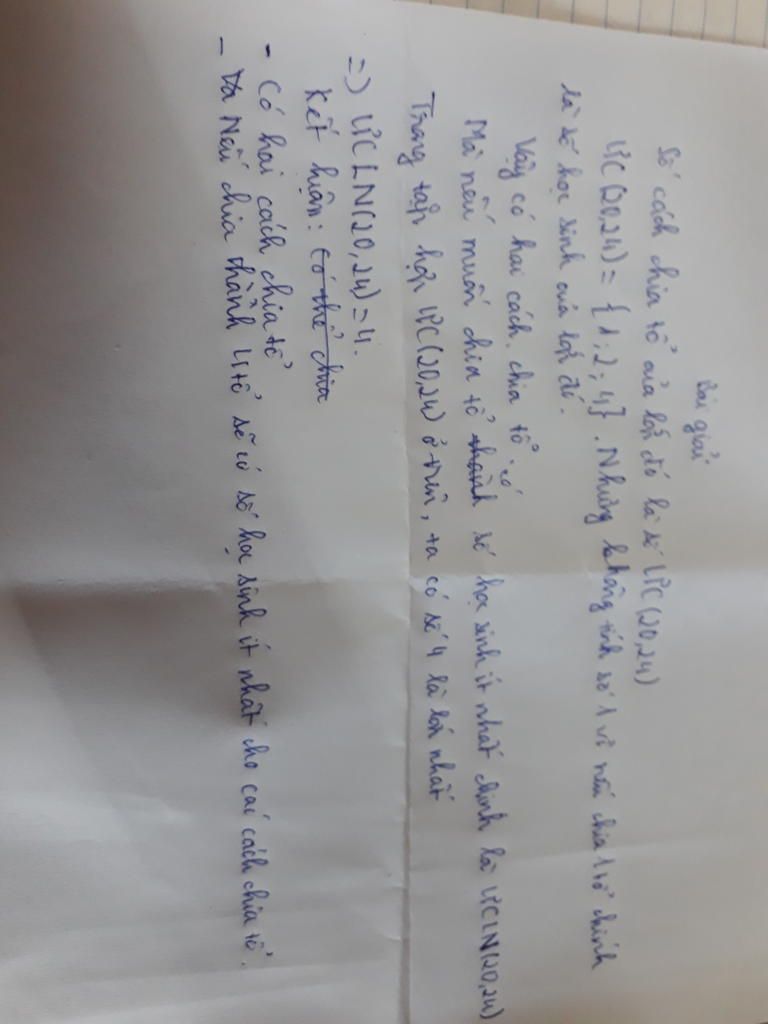 Bài giải
Số cách chia tổ của lớp đó là số ƯC(20,24)
ƯC(20,24) = {1; 2; 4}. Nhưng không tính số 1 vì nếu chia 1 tổ chính
là số học sinh của lớp đó.
Vậy có hai cách chia tổ.
Mà nếu muốn chia tổ thành có số học sinh ít nhất chính là ƯCLN(20,24)
Trong tập hợp ƯC(20,24) ở trên, ta có số 4 là lớn nhất
=) ƯCLN(20,24) = 4.
Kết luận: Có thể chia
- Có hai cách chia tổ
- Và Nếu chia thành 4 tổ sẽ có số học sinh ít nhất cho các cách chia tổ.